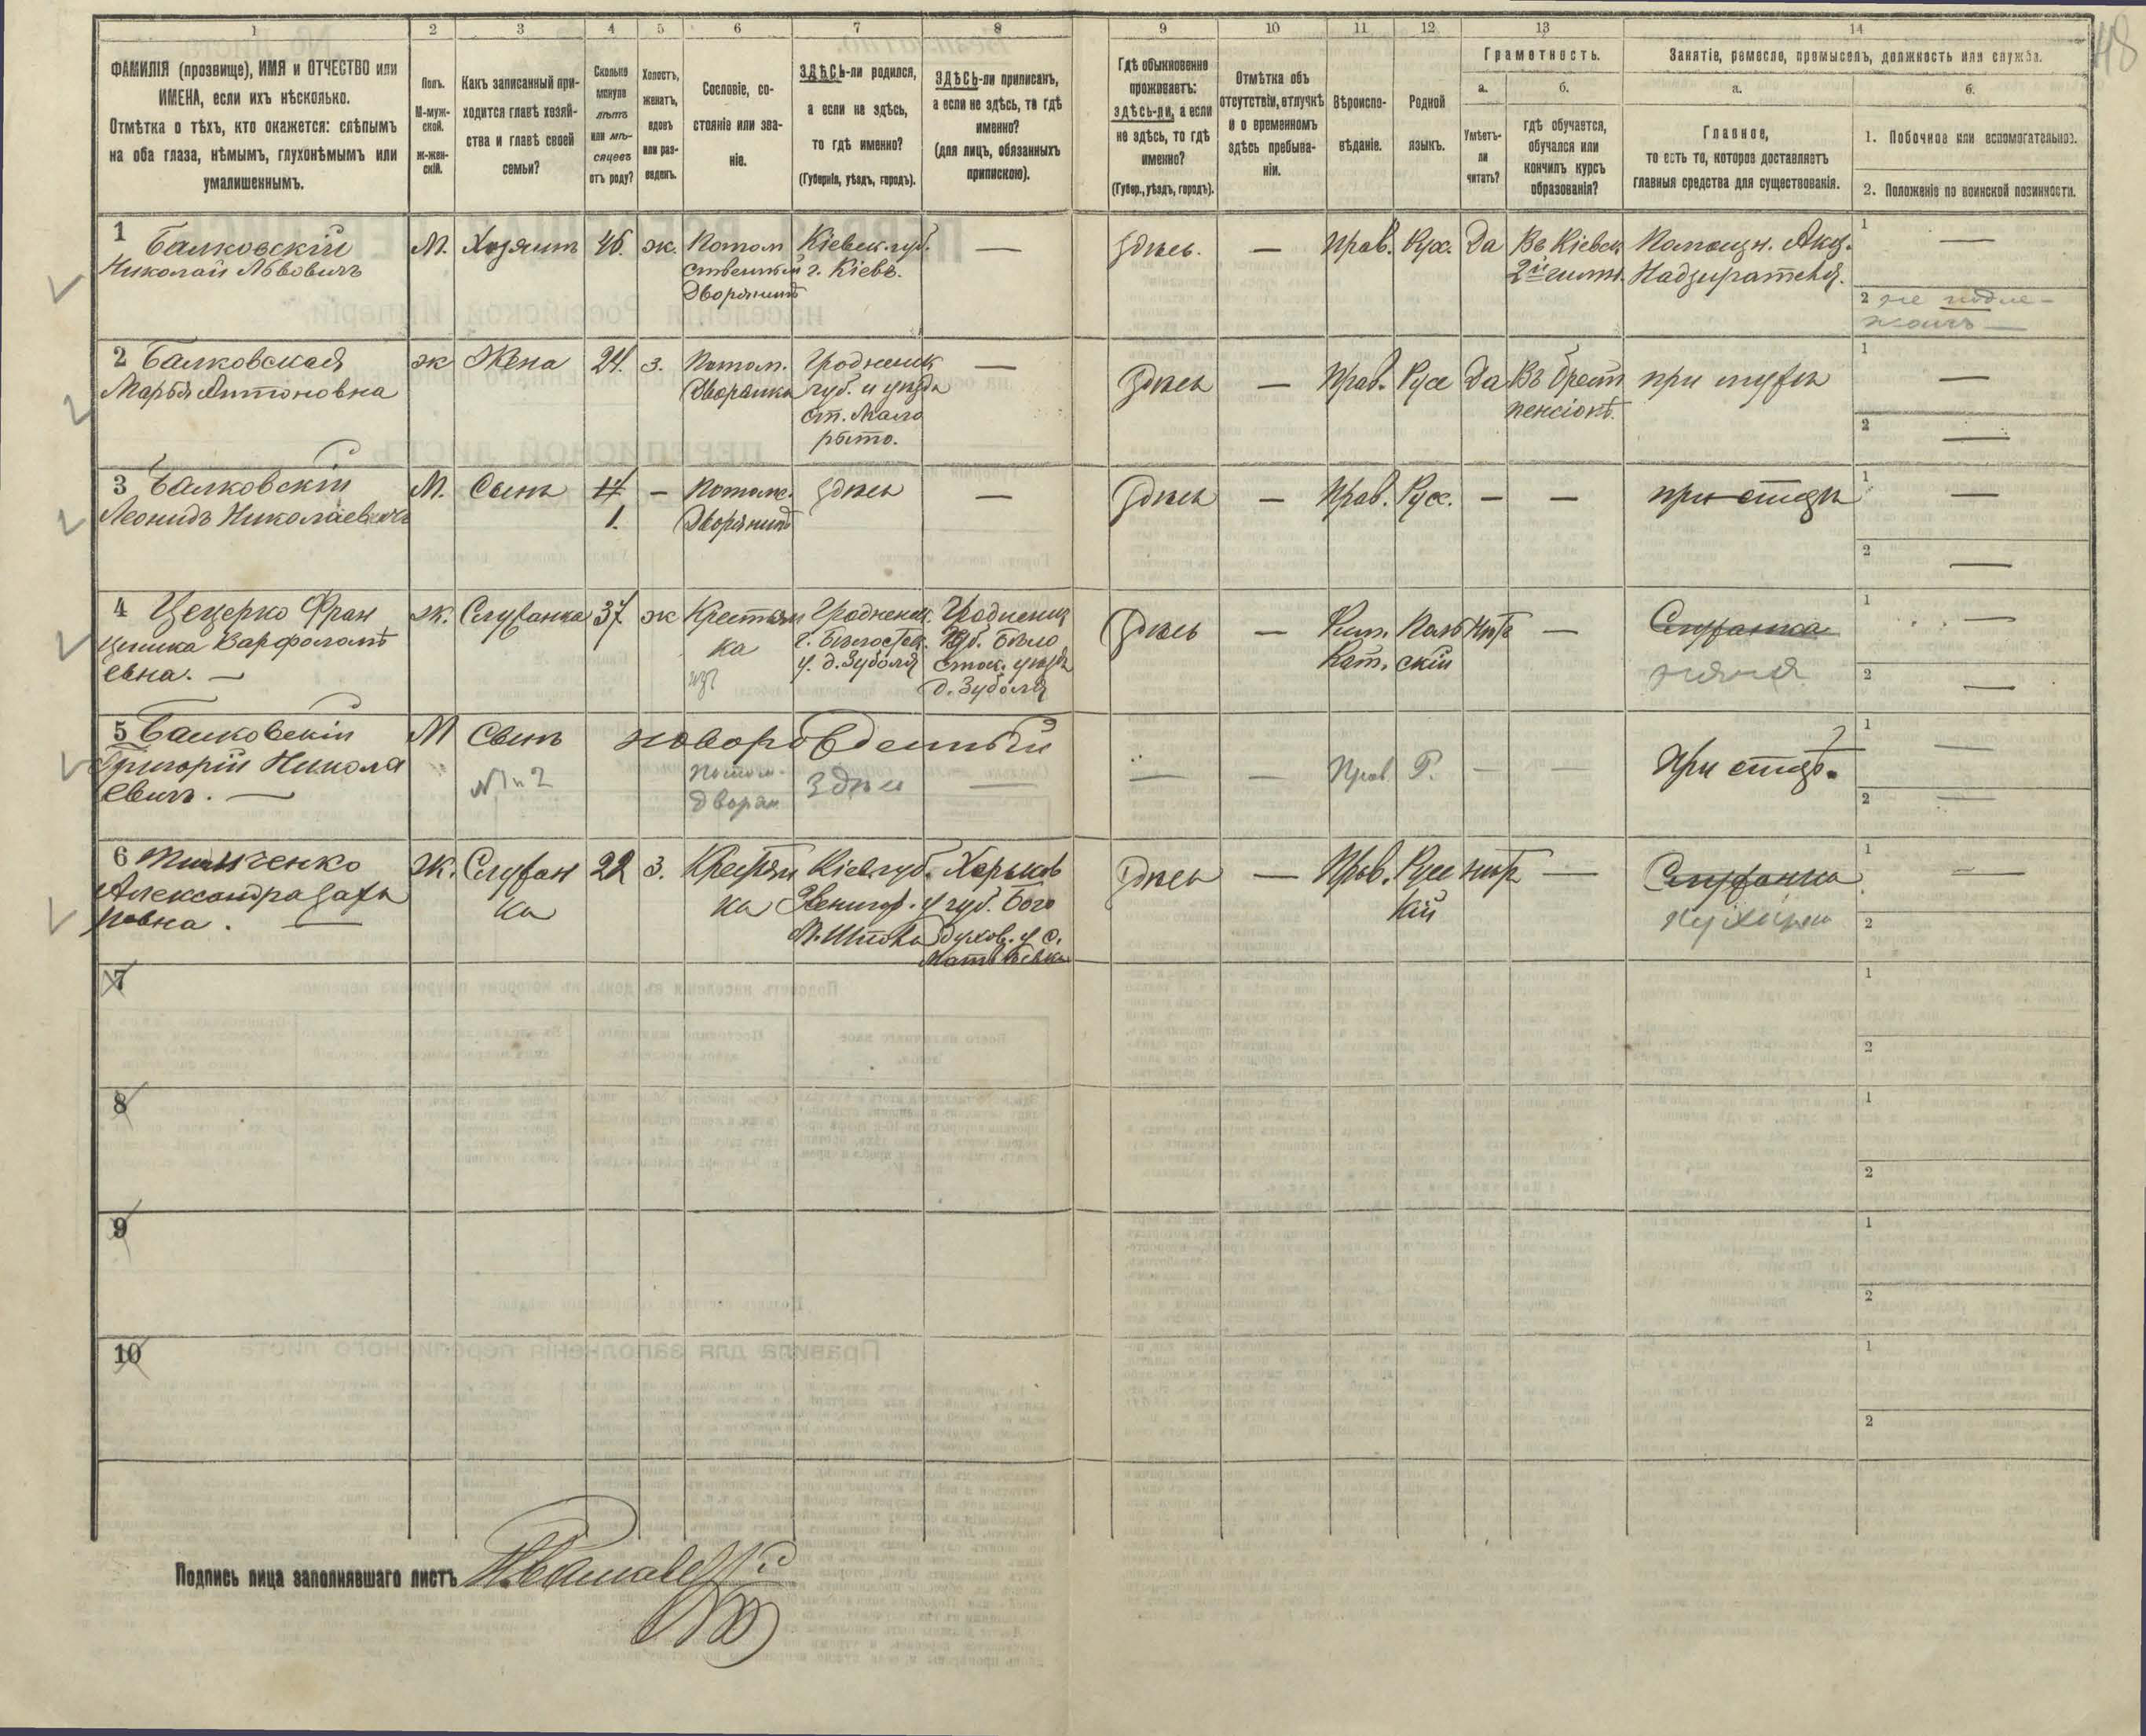 48
1 2 3 4 5 6 7 8 9 10 11 12 13 14
ФАМИЛІЯ (прозвище), ИМЯ и ОТЧЕСТВО или
ИМЕНА, если ихъ нѣсколько.
Отмѣтка о тѣхъ, кто окажется: слѣпымъ
на оба глаза, нѣмымъ, глухонѣмымъ или
умалишеннымъ.
Полъ.
М-муж-
ской.
ж-жен-
скій.
Какъ записанный при-
ходится главѣ хозяй-
ства и главѣ своей
семьи?
Сколько
минуло
лѣтъ
или мѣ-
сяцевъ
отъ роду?
Холостъ,
женатъ,
вдовъ
или раз-
веденъ.
Сословіе, со-
стояніе или зва-
ніе.
ЗДѢСЬ-ли родился,
а если не здѣсь,
то гдѣ именно?
(Губернія, уѣздъ, городъ).
ЗДѢСЬ-ли приписанъ,
а если не здѣсь, то гдѣ
именно?
(для лицъ, обязанныхъ
припискою).
Гдѣ обыкновенно
проживаетъ:
здѣсь-ли, а если
не здѣсь, то гдѣ
именно?
(Губер., уѣздъ, городъ).
Отмѣтка объ
отсутствіи, отлучкѣ
и о временномъ
здѣсь пребыва-
ніи.
Вѣроиспо-
вѣданіе.
Родной
языкъ.
Грамотность.
а.
Умѣетъ-
ли
читать?
б.
гдѣ обучается,
обучался или
кончилъ курсъ
образованія?
Занятіе, ремесло, промыселъ, должность или служба.
а.
Главное,
то есть то, которое доставляетъ
главныя средства для существованія.
б.
1. Побочное или вспомогательное.
2. Положеніе по воинской повинности.
1 Балковскій
Николай Львовичъ
М.
Хозяинъ
46.
ж.
Потом
ственный
Дворянинъ
Кіевск. губ.
г. Кіевъ.
—
Здѣсь.
—
Прав.
Рус.
Да
Въ Кіевск
2й гимн.
Помощн. Акц.
Надзирателя.
1 —
2 не подле-
житъ —
2 Балковская
Марья Антоновна
ж
Жена
24.
з.
Потом.
Дворянка
Гродненск
губ. и уѣзда
ст. Мало
рыто.
—
Здѣсь
—
Прав.
Русс
Да
Въ Брест
пенсіонѣ.
при мужѣ
1 —
2 —
3 Балковскій
Леонидъ Николаевичъ
М.
Сынъ
1.
—
Потомс.
Дворянинъ
Здѣсь
—
Здѣсь
—
Прав.
Рус.
—
—
при отцѣ
1 —
2 —
4 Цецерко Фран
цишка Варфоломѣ
евна. —
ж.
Служанка
37
ж
Крестьян
ка
Гродненск.
г. Бѣлосток.
у. д. Зуболя
Гродненск
Губ. Бѣло
сток. уѣзда
д. Зуболя
Здѣсь
—
Рим.
Кат.
Поль
скій
Нѣтъ
—
Служанка
няня
1 —
2 —
5 Балковскій
Григорій Никола
евичъ. —
М
Сынъ
№ 1 и 2
новорожденный
потом.
дворян
Здѣсь
—
—
—
Прав.
Р.
—
—
При отцѣ.
1 —
2 —
6 Александра
повна. —
Ж.
Служан
ка
22
з.
Крестьян
ка
Кіев. губ.
Звенигор. у
Харьков
губ. Бого
духов. у с.
Матвѣевка
Здѣсь
—
Прав.
Русс
кій
нѣтъ
—
Служанка
кухарка
1 —
2
7
1
2
8
1
2
9
1
2
10
1
2
Подпись лица заполнявшаго листъ